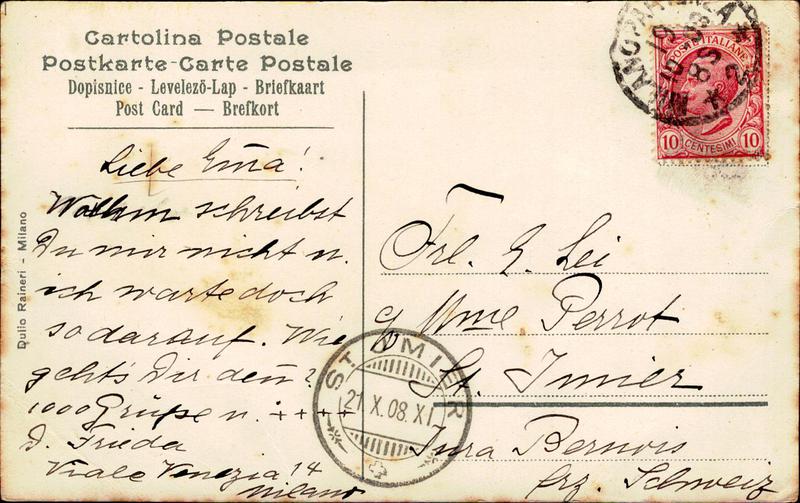 Cartolina Postale
Postkarte-Carte Postale
Dopisnice - Levelező-Lap - Briefkaart
Post Card — Brefkort
Liebe Em̄a!
schreibst
Du mir nicht u.
ich warte doch
so darauf. Wie
geht's Dir den̄?
1000 Grüße u. ++++
D. Frieda
Viale Venezia 14
Milano
Duilio Raineri - Milano
POSTE ITALIANE
10 CENTESIMI 10
MILANO PARTENZA
ST. IMIER
21.X.08.XI
Frl. E. Lei
c/o Mme Perrot
St. Imier
Jura Bernois
frz. Schweiz